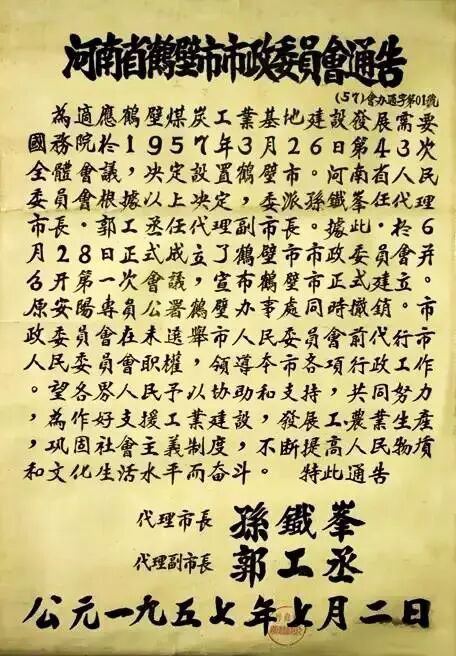 河南省鶴壁市市政委員會通告
(57)會办通字第01號
為適應鶴壁煤炭工業基地建設發展需要
國務院於1957年3月26日第43次
全體會議，决定設置鶴壁市。河南省人民
委員會根據以上决定，委派孫鐵峯任代理
市長．郭工丞任代理副市長。據此．於6
月28日正式成立了鶴壁市市政委員會并
召开第一次會議，宣布鶴壁市正式建立。
原安陽專員公署鶴壁办事處同時撤銷。市
政委員會在未選舉市人民委員會前代行市
人民委員會职權，領導本市各項行政工作
。望各界人民予以協助和支持，共同努力
，為作好支援工業建設，發展工．農業生產
，巩固社會主義制度，不断提高人民物質
和文化生活水平而奋斗。 特此通告
代理市長 孫鐵峯
代理副市長 郭工丞
公元一九五七年七月二日